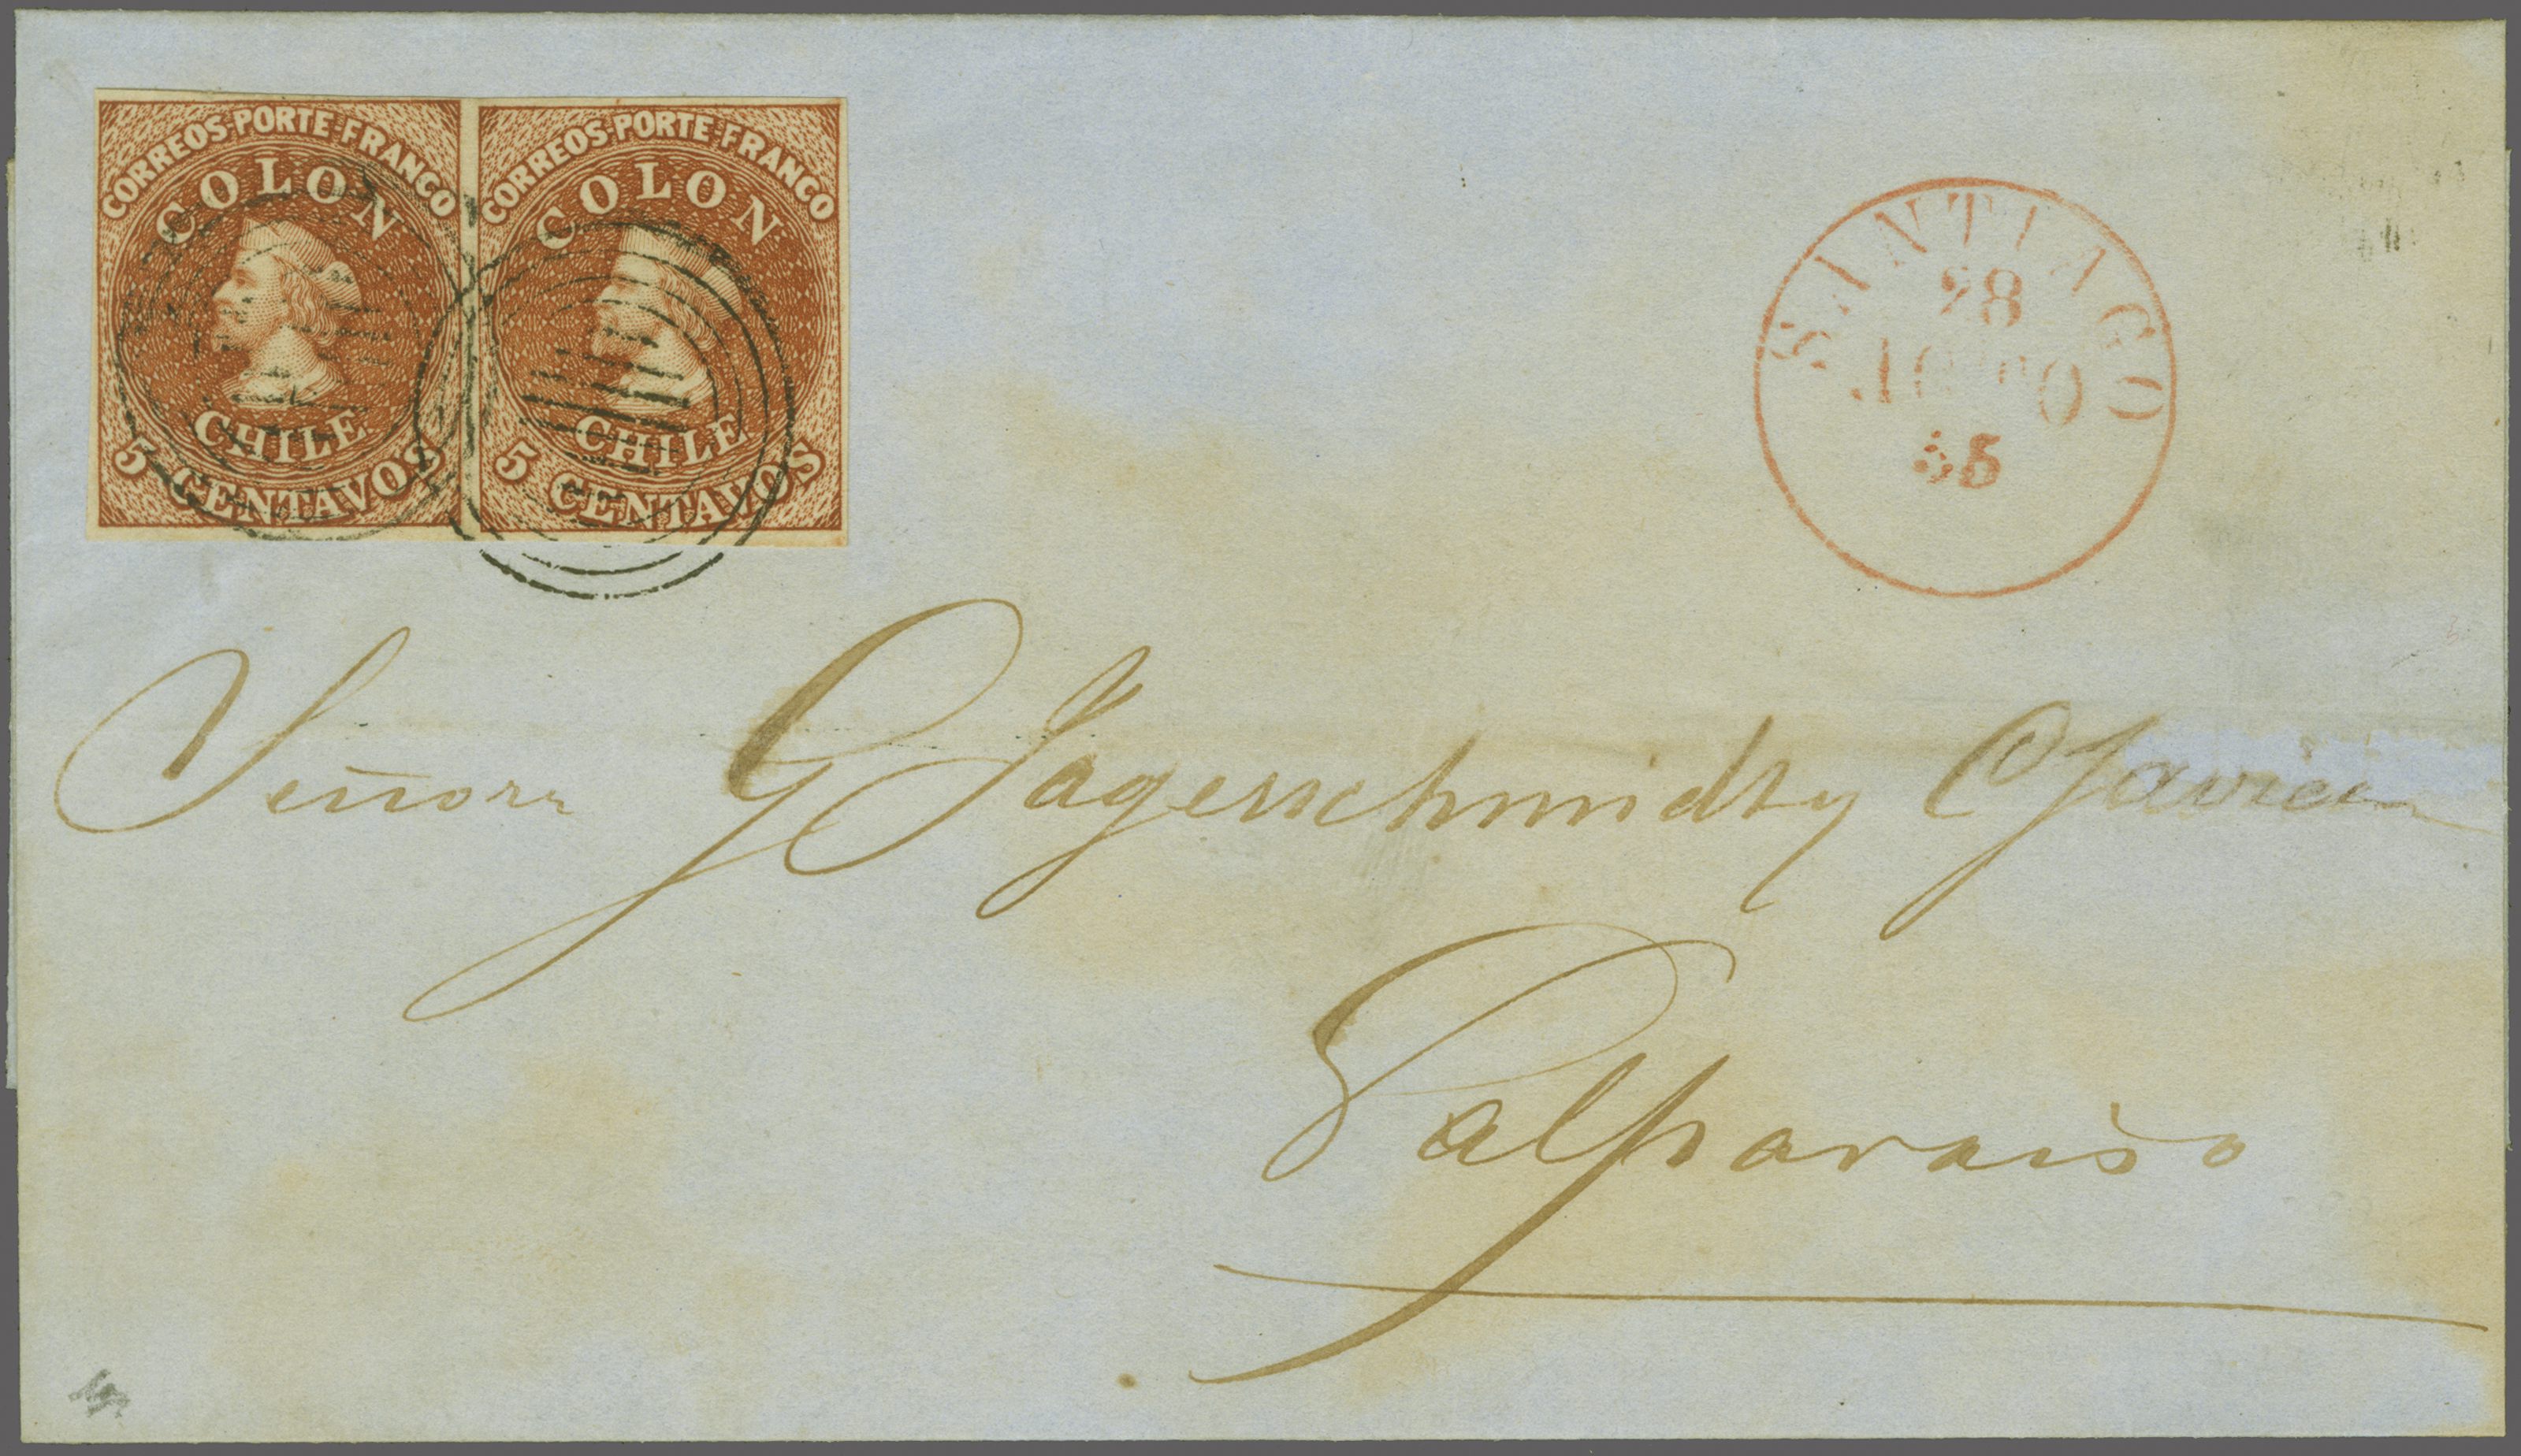 CORREOS-PORTE-FRANCO
COLON
CHILE
5 CENTAVOS
CORREOS-PORTE-FRANCO
COLON
CHILE
5 CENTAVOS
SANTIAGO
28
Señorr G Jagerschmidt y
Valparaiso